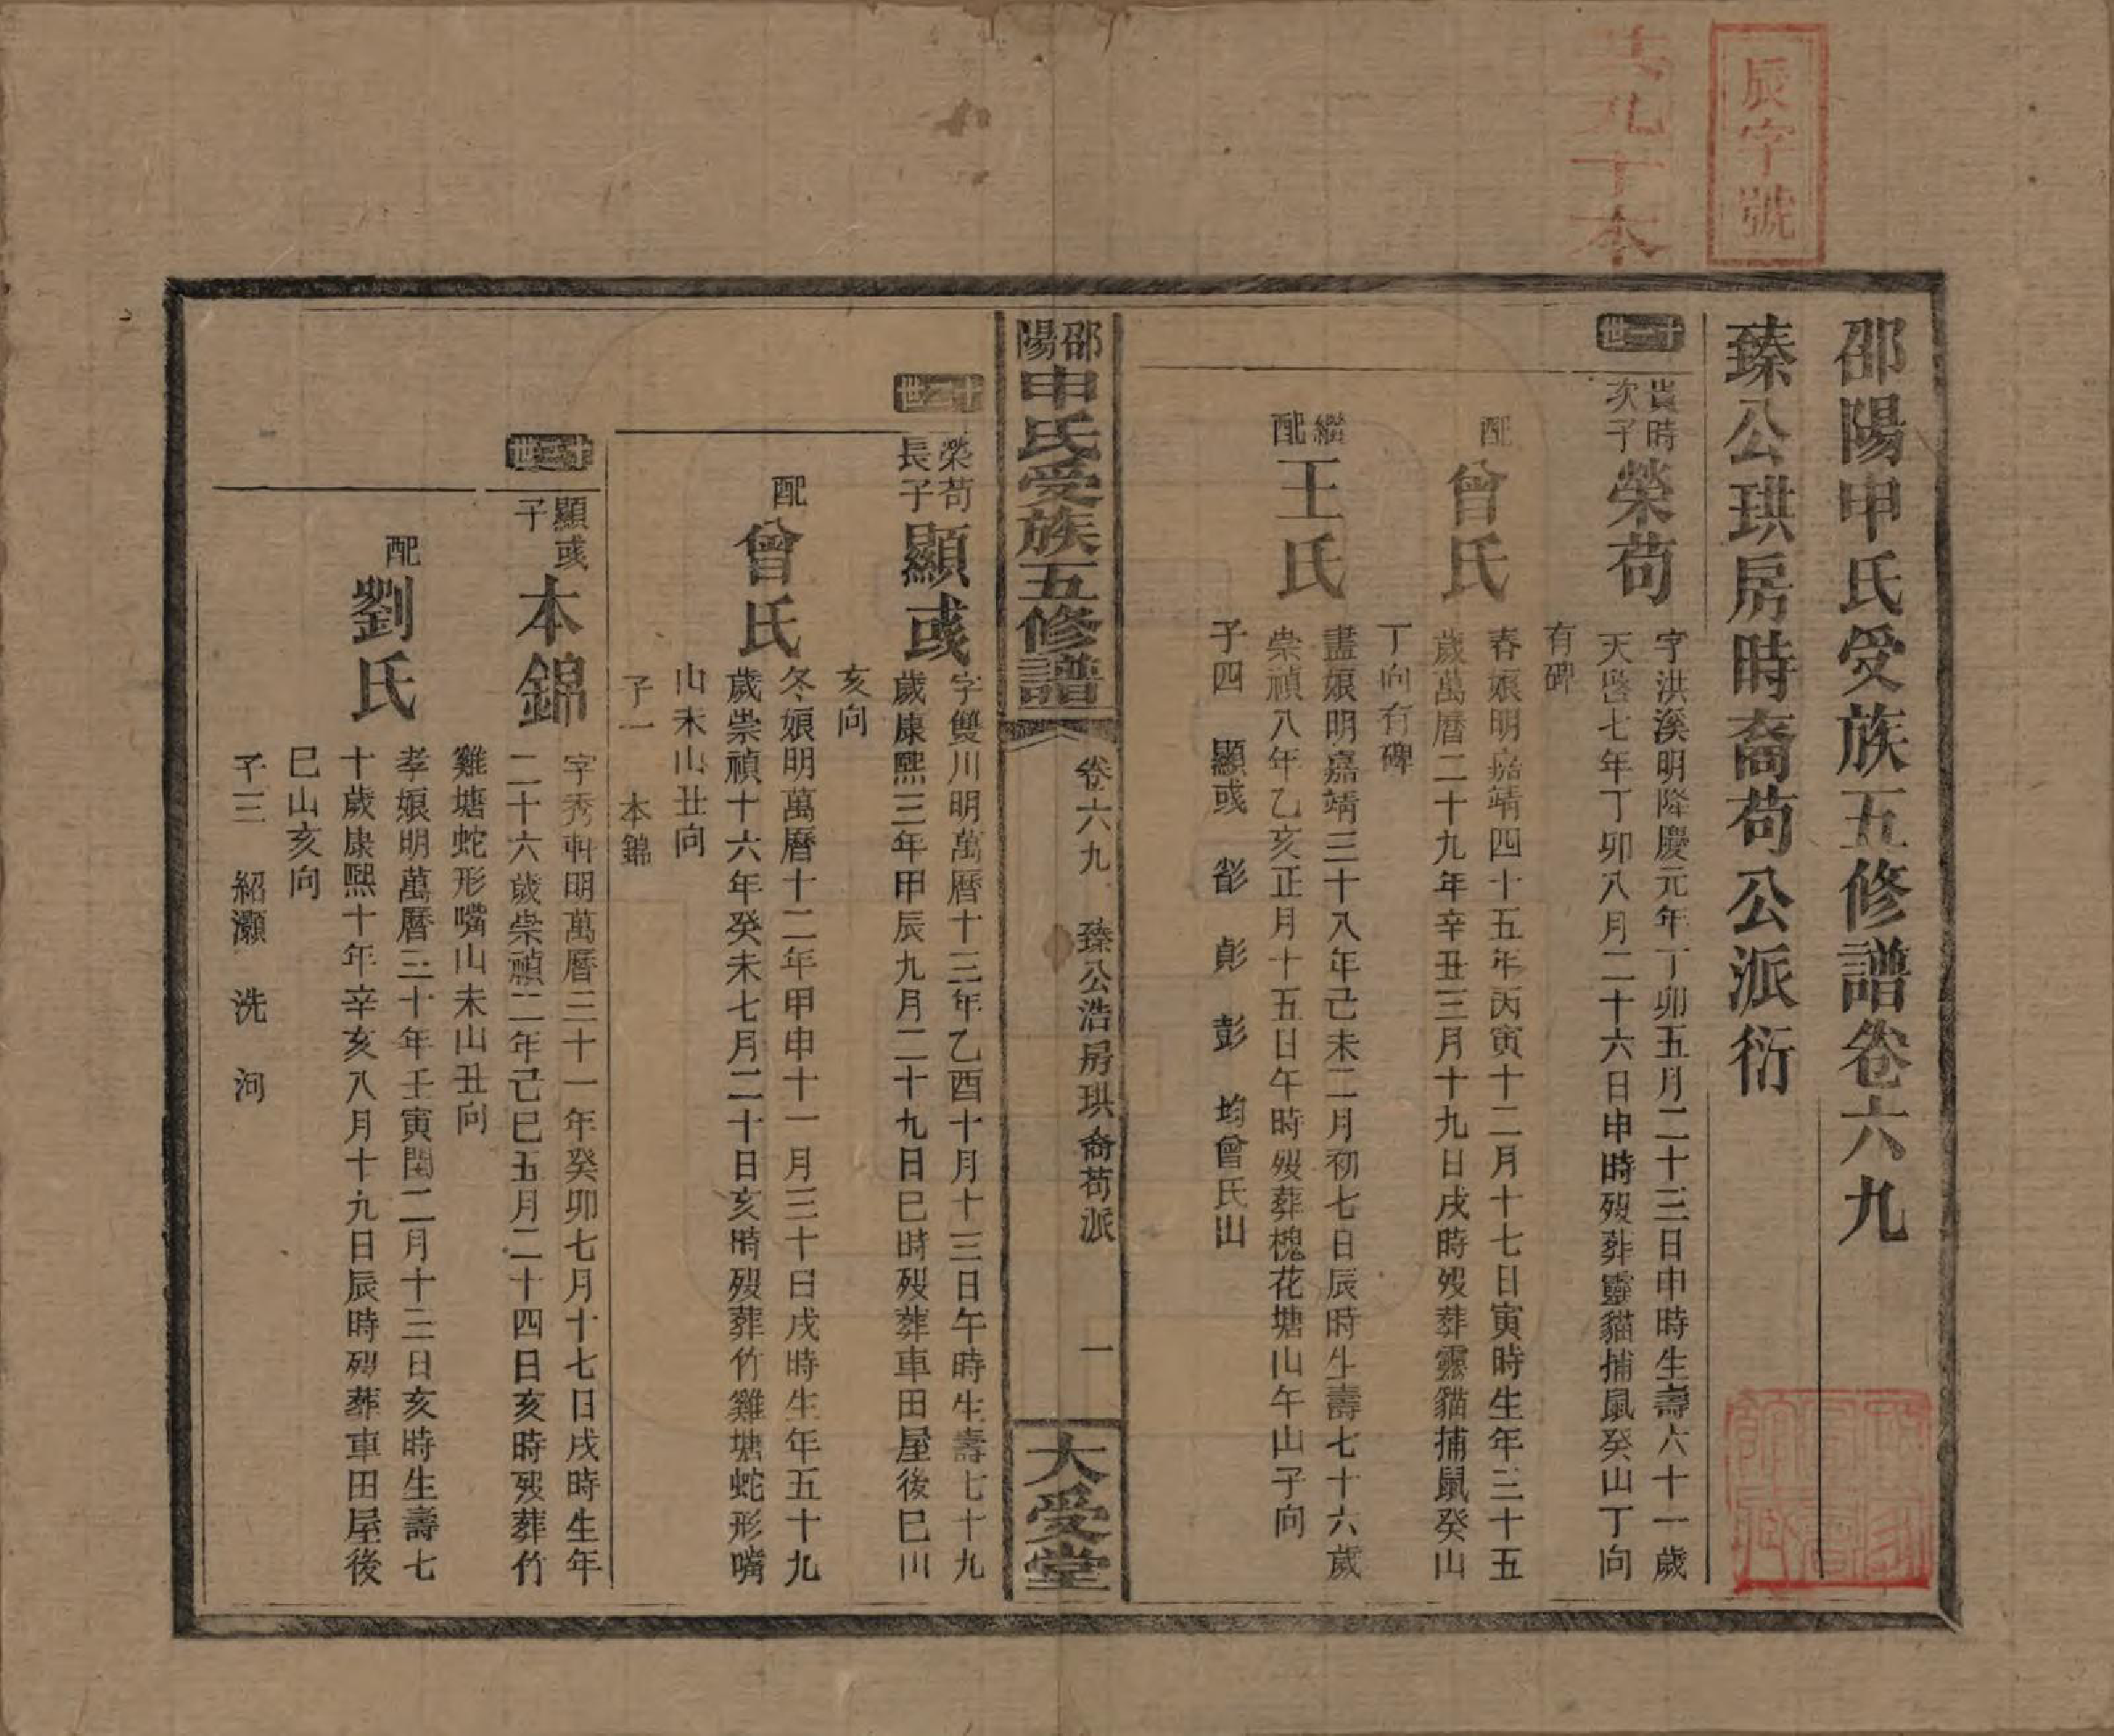 辰字號
九十本
邵陽申氏受族五修譜卷六九
臻公珙房時裔苟公派衍
十一世
貴時次子
榮苟
字洪溪明隆慶元年丁卯五月二十三日申時生壽六十一歲
天啟七年丁卯八月二十六日申時歿葬靈貓捕鼠癸山丁向
有碑
配
曾氏
春娘明嘉靖四十五年丙寅十二月十七日寅時生年三十五
歲萬曆二十九年辛丑三月十九日戌時歿葬靈貓捕鼠癸山
丁向有碑
繼配
王氏
盡娘明嘉靖三十八年己未二月初七日辰時生壽七十六歲
崇禎八年乙亥正月十五日午時歿葬槐花塘山午山子向
子四 顯彧 彭 均曾氏出
邵陽申氏受族五修譜
卷六九 臻公浩房珙裔苟派 一
大受堂
十二世
榮苟長子
顯彧
字雙川明萬曆十三年乙酉十月十三日午時生壽七十九
歲康熙三年甲辰九月二十九日巳時歿葬車田屋後巳山
亥向
配
曾氏
冬娘明萬曆十二年甲申十一月三十日戌時生年五十九
歲崇禎十六年癸未七月二十日亥時歿葬竹雞塘蛇形嘴
山未山丑向
子一 本錦
十三世
顯彧子
本錦
字秀軒明萬曆三十一年癸卯七月十七日戌時生年
二十六歲崇禎二年己巳五月二十四日亥時歿葬竹
雞塘蛇形嘴山未山丑向
配
劉氏
孝娘明萬曆三十年壬寅閏二月十三日亥時生壽七
十歲康熙十年辛亥八月十九日辰時歿葬車田屋後
巳山亥向
子三 紹灝 洗 河